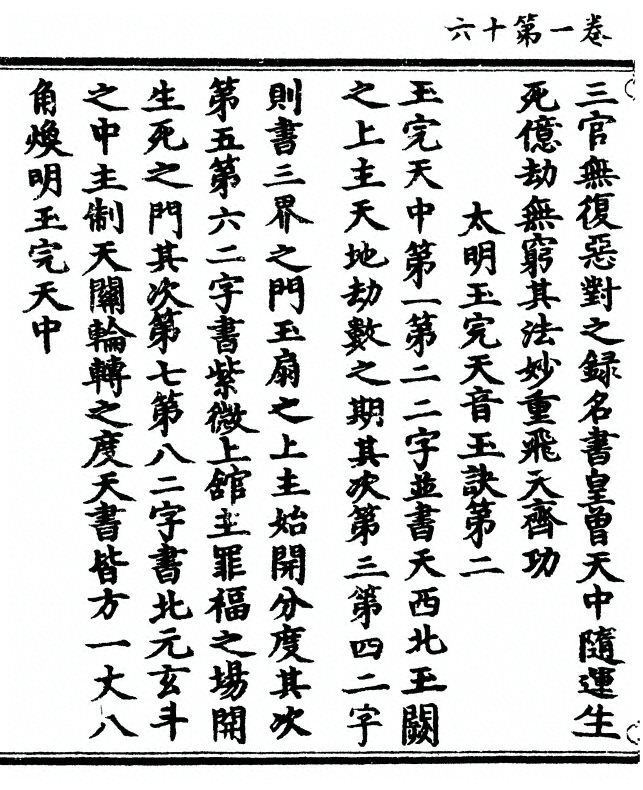 卷一第十六
三官無復惡對之録名書皇曾天中隨運生
死億劫無窮其法妙重飛天齊功
太明玉完天音玉訣第二
玉完天中第一第二二字並書天西北玉闕
之上主天地劫數之期其次第三第四二字
則書三界之門玉扇之上主始開分度其次
第五第六二字書紫微上舘主罪福之場開
生死之門其次第七第八二字書北元玄斗
之中主制天關輪轉之度天書皆方一丈八
角煥明玉完天中